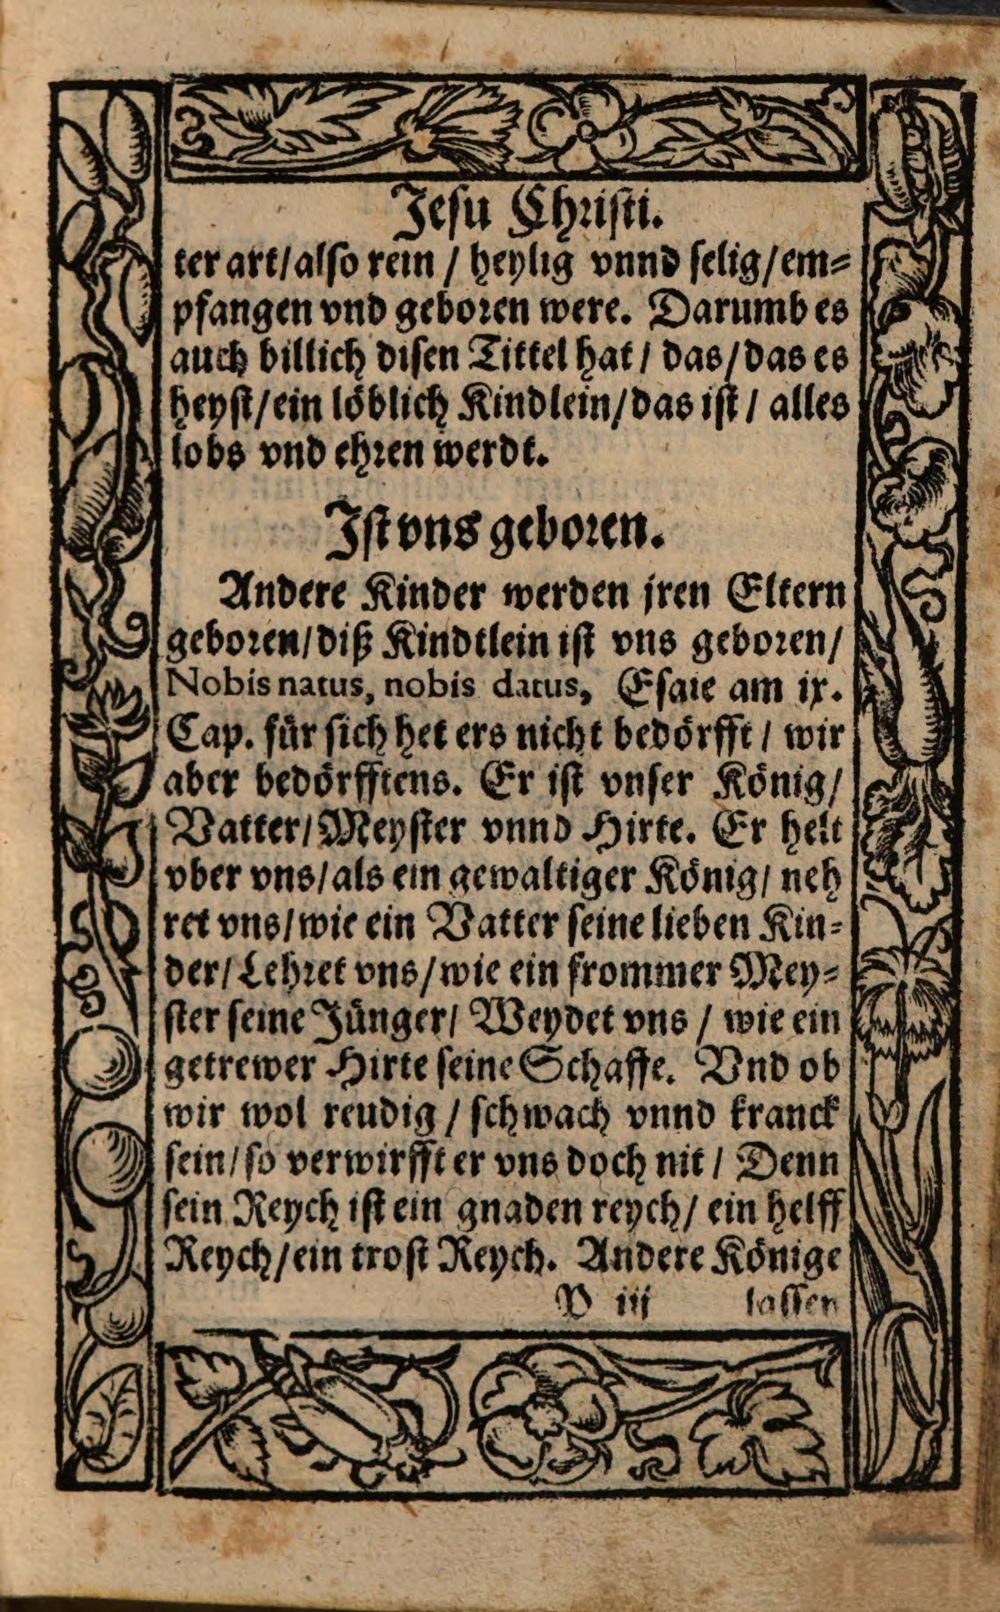 Jesu Christi.
ter art/also rein / heylig vnnd selig/em⸗
pfangen vnd geboren were. Darumb es
auch billich disen Tittel hat / das/das es
heyst/ein löblich Kindlein/das ist / alles
lobs vnd ehren werdt.
Ist vns geboren.
Andere Kinder werden jren Eltern
geboren/diß Kindtlein ist vns geboren/
Nobis natus, nobis datus, Esaie am ix.
Cap. für sich het ers nicht bedörfft / wir
aber bedörfftens. Er ist vnser König/
Vatter/Meyster vnnd Hirte. Er helt
vber vns/als ein gewaltiger König/ neh
ret vns/wie ein Vatter seine lieben Kin⸗
der/Lehret vns/wie ein frommer Mey⸗
ster seine Jünger/ Weydet vns / wie ein
getrewer Hirte seine Schaffe. Vnd ob
wir wol reudig / schwach vnnd kranck
sein/so verwirfft er vns doch nit / Denn
sein Reych ist ein gnaden reych/ ein helff
Reych/ein trost Reych. Andere Könige
V iij lassen